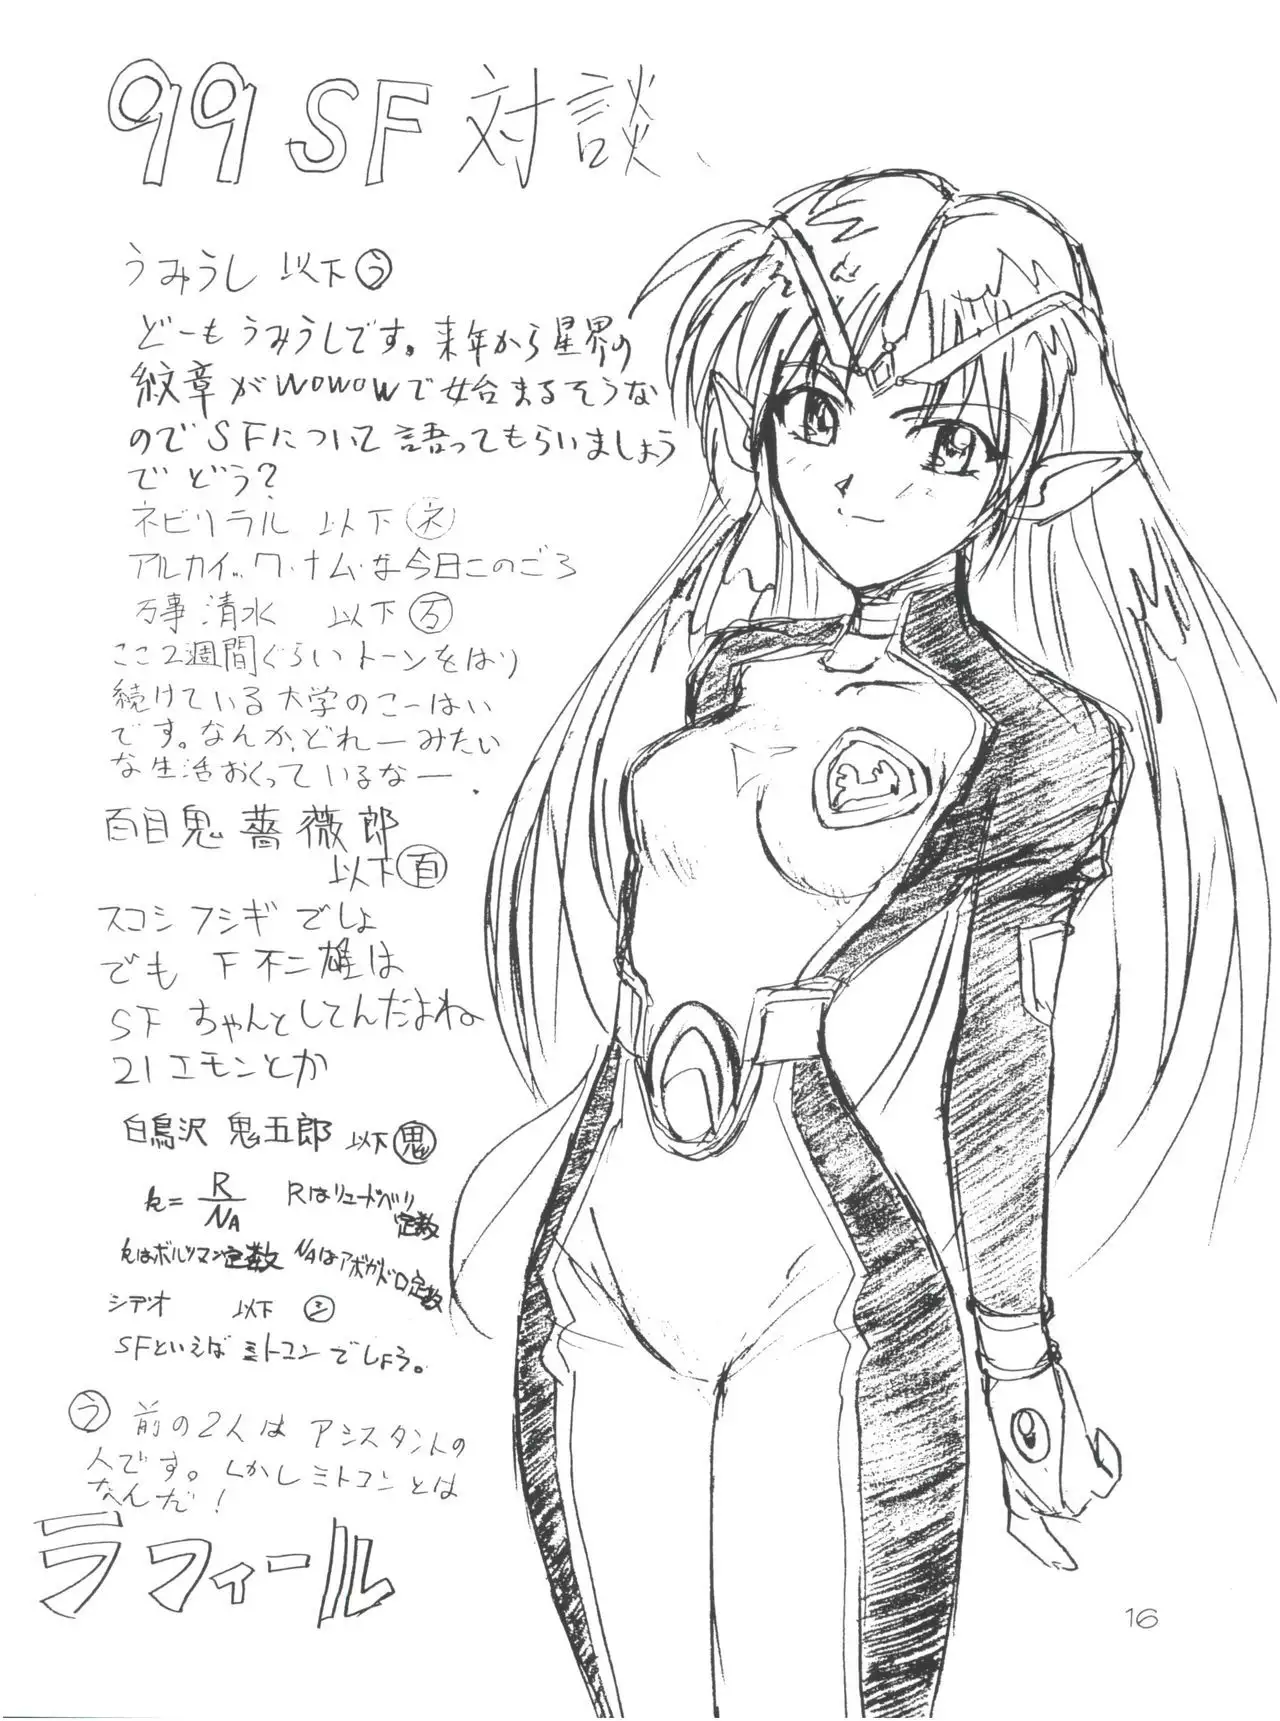 99 SF 対談、
うみうし 以下 う
どーもうみうしです。来年から星界の
紋章がWOWOWで始まるそうな
のでSFについて語ってもらいましょう
でどう?
ネビリラル 以下 ネ
アルカイック・ナム・な今日このごろ
万事 清水 以下 万
ここ2週間ぐらいトーンをはり
続けている大学のこーはい
です。なんか、どれーみたい
な生活おくっているなー.
百目鬼 薔薇郎
以下 百
スコシフシギでしょ
でも 下不二雄は
SF ちゃんとしてんだよね
21エモンとか
白鳥沢 鬼五郎 以下 鬼
k = R/NA Rはリュードベリ
定数
kはボルツマン定数 NAはアボガドロ定数
シデオ 以下 シ
SFといえば ミトコン でしょう。
う 前の2人は アシスタントの
人です。しかしミトコンとは
なんだ!
ラフィール
16